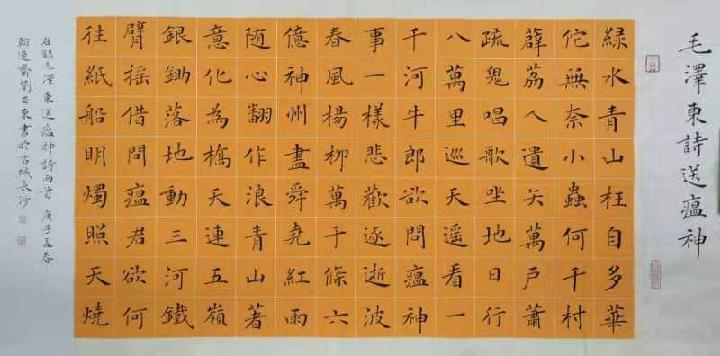 毛澤東詩送瘟神
綠水青山枉自多華
佗無奈小蟲何千村
薜荔人遺矢萬戶蕭
疏鬼唱歌坐地日行
八萬里巡天遙看一
千河牛郎欲問瘟神
事一樣悲歡逐逝波
春風楊柳萬千條六
億神州盡舜堯紅雨
随心翻作浪青山著
意化為橋天連五嶺
銀鋤落地動三河鐵
臂搖借問瘟君欲何
往紙船明燭照天燒
右録毛澤東送瘟神詩兩首 庚子孟春
齋劉東書於古城長沙